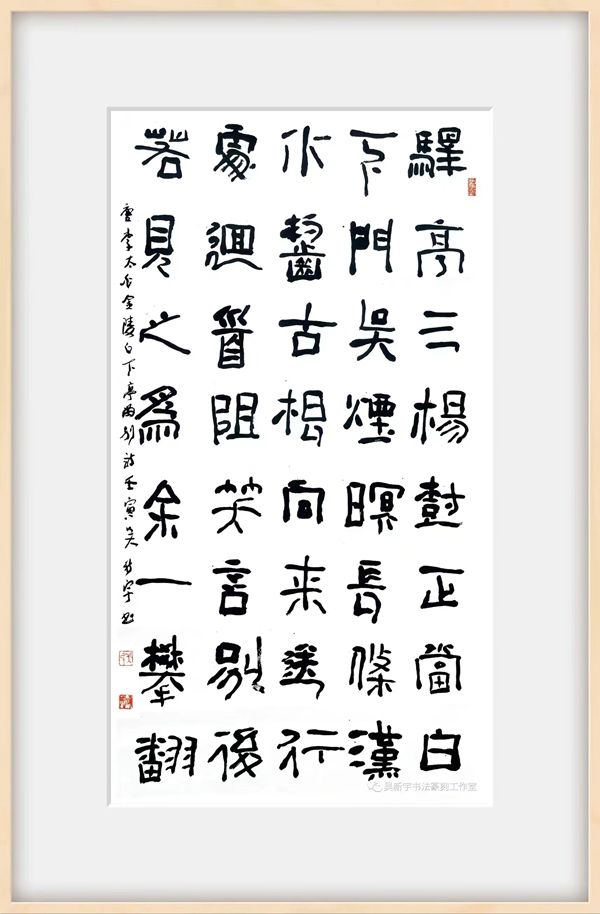 驛亭三楊樹正當白
下門吳煙暝長條漢
水齧古根向来送行
處迴首阻笑言別後
若見之爲余一攀翻
唐李太白金陵白下亭留别詩壬寅吴新宇书
吴新宇书法篆刻工作室